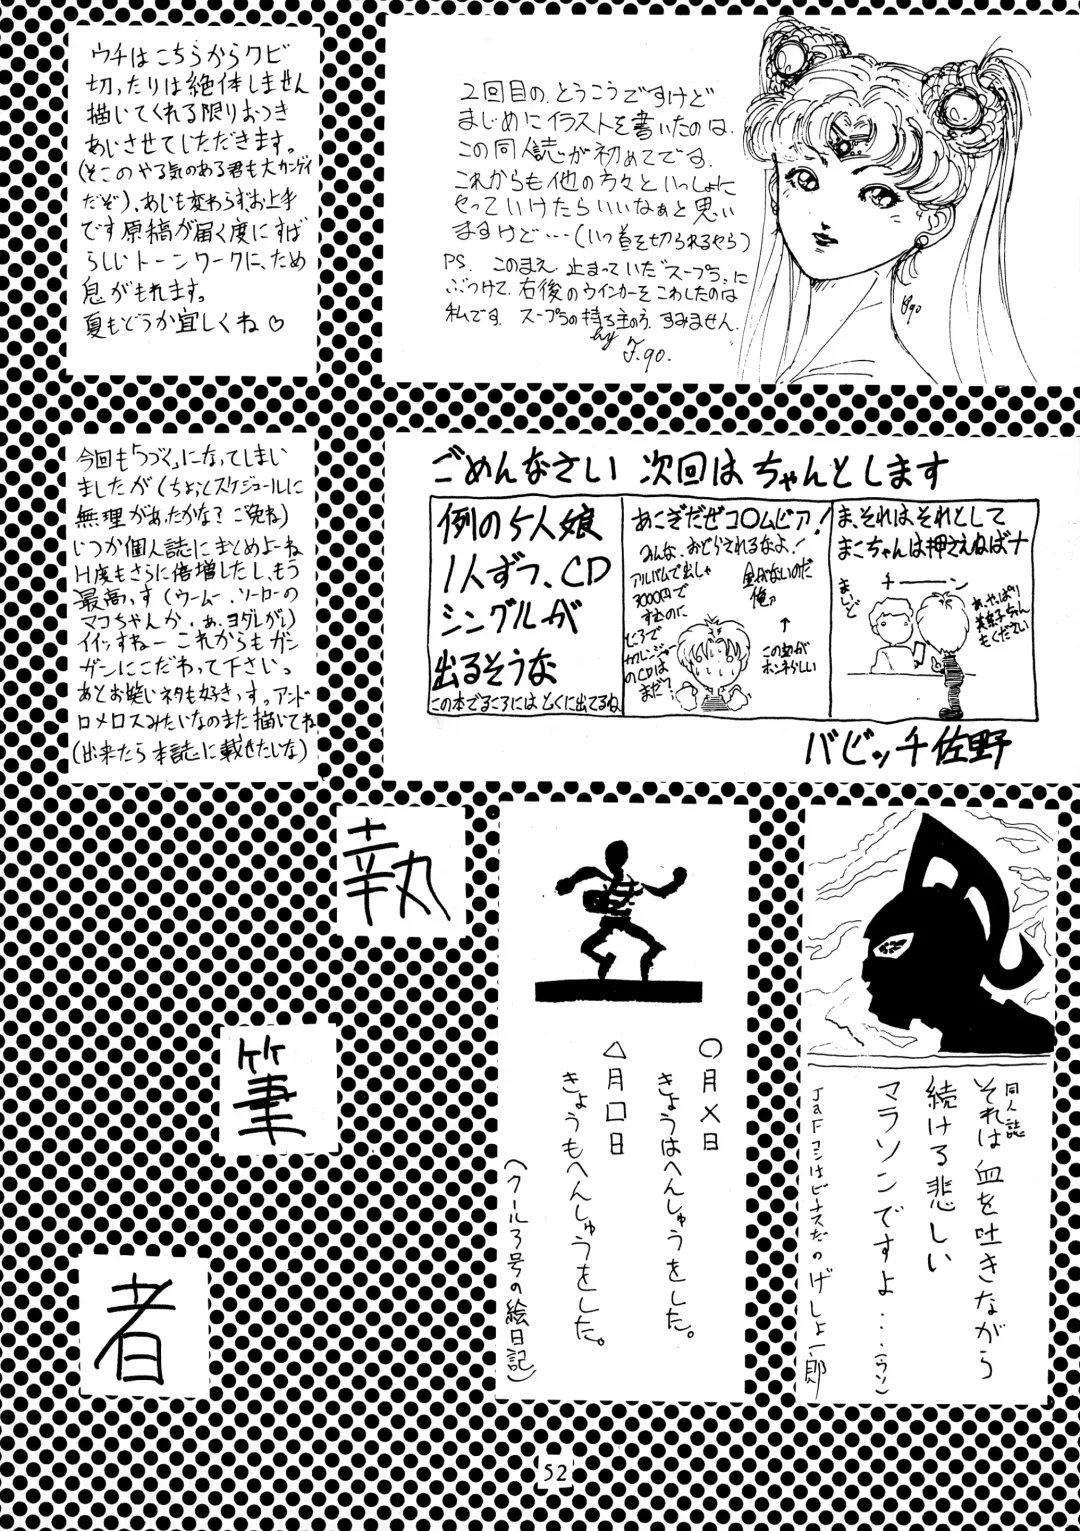 ウチはこちらからクビ
切ったりは絶体しません
描いてくれる限りおつき
あいさせていただきます。
(そこのやる気のある君も大カンゲイ
だぞ)、あいも変わらずお上手
です原稿が届く度にすば
らしいトーンワークに、ため
息がもれます。
夏もどうか宜しくね♡
2回目の、とうこうですけど
まじめにイラストを書いたのは、
この同人誌が初めてです。
これからも他の方々といっしょに
やっていけたらいいなぁと思い
ますけど…(いつ首を切られるやら)
PS. このまえ、止まっていた"スープラ"に
ぶつけて、右後のウインカーをこわしたのは
私です。スープラの持ち主のう、すみません。
by
J.90.
J90
今回も「つづく」になってしまい
ましたが(ちょっとスケジュールに
無理があったかな? ご免ね)
いつか個人誌にまとめよーね
H度もさらに倍増したし、もう
最高っす(ウームー、ソーローの
マコちゃんか、あ、ヨダレがし)
イイッすねー これからもガン
ガンにこだわって下さいっ
あとお笑いネタも好きっす。アンド
ロメロスみたいなのまた描いてね
(出来たら本誌に載せたいな)
ごめんなさい 次回はちゃんとします
例の5人娘
1人ずつ、CD
シングルが
出るそうな
この本でるころにはとくに出てるね
あこぎだぜコロムビア!
みんな、おどらされるなよ!
アルバムで出しゃ
3000円で
すむのに
ところで
カルレンジャー
のCDは
まだ?
金がないのだ
俺ァ
↑
この辺が
ホンネらしい
ま、それはそれとして
まこちゃんは押さえねばナ
チーーン
まいど
あ、やっぱり
美奈子ちゃん
もください
バビッチ佐野
執
筆
者
○月×日
きょうはへんしゅうをした。
△月□日
きょうもへんしゅうをした。
(クール3号の絵日記)
同人誌
それは血を吐きながら
続ける悲しい
マラソンですよ‥‥(ウソ)
JaFコンはビナスだのげしょ一郎
52